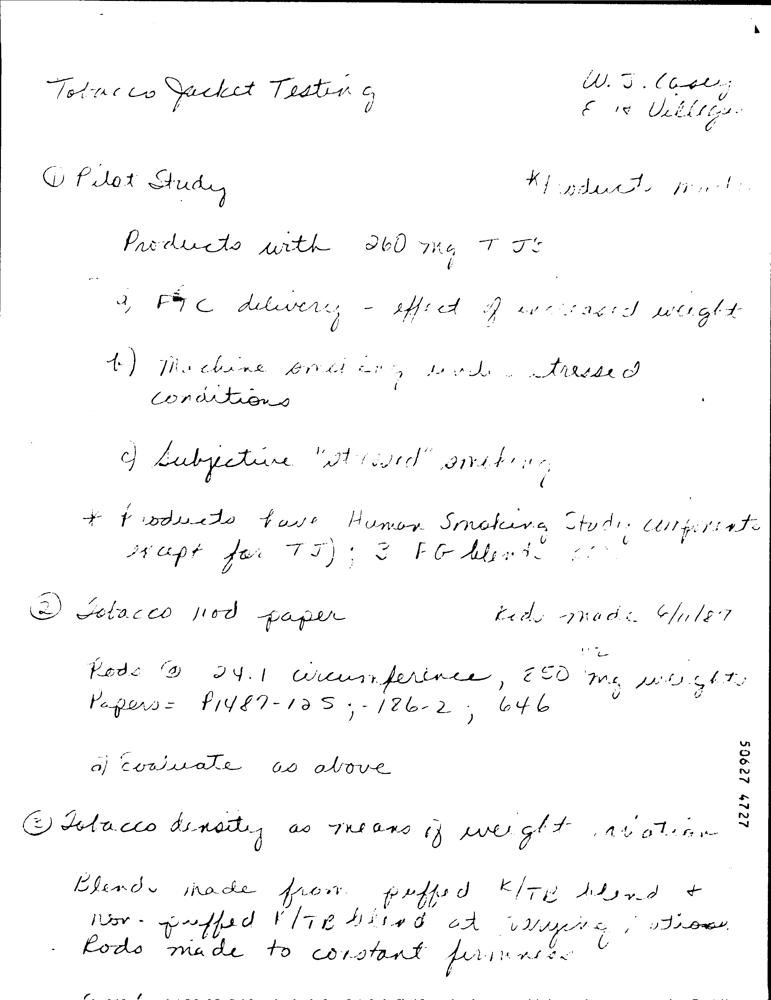 Tobacco Jacket Testing
W. J. Casey
E
① Pilot Study
*Products made
Products with 260 mg TJ's
a, FTC delivery - effect of increased weight
b) Machine smoking under stressed
conditions
c) Subjective "stressed" smoking
* Products have Human Smoking Study components
except for TJ); 3 FG blends
② Tobacco rod paper
Rods made 6/11/87
Rods @ 24.1 circumference, 250 mg weights
Papers = P1487-125; -126-2; 646
a) Evaluate as above
③ Tobacco density as means of weight
Blends made from puffed K/TB blend +
non-puffed K/TB blend at varying
Rods made to constant firmness
50627 4727